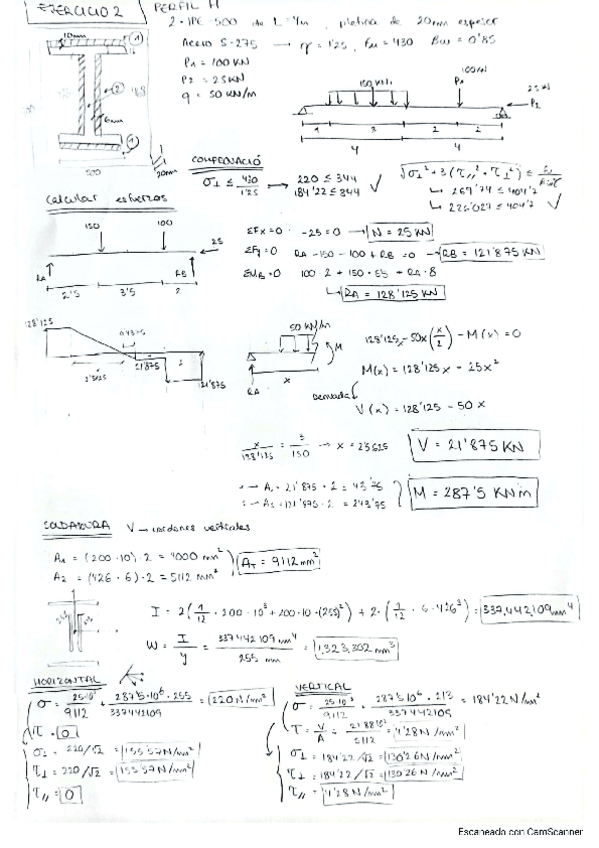 EJERCICIO 2
PERFIL H
2 · IPE 500 de L = 4m , platina de 20mm espesor
Acero S-275 → γ = 1'25 , Fu = 430 βw = 0'85
P1 = 100 KN
P2 = 25 KN
q = 50 KN/m
10mm
1
2
6mm
1
500
20mm
150 KN
100KN
P1
25 KN
P2
1 3 2 2
4 4
COMPROVACIÓ
σ⊥ ≤ 430/1'25 → 220 ≤ 344
184'22 ≤ 344 ✓
√σ⊥² + 3(τ∥² + τ⊥²) ≤
↳ 269'74 ≤ 404'7
↳ 225'027 ≤ 404'7 ✓
Calcular esfuerzos
150 100 25
RA RB
2'5 3'5 2
ΣFx=0 -25=0 → N = 25 KN
ΣFy=0 RA -150 -100 + RB = 0 → RB = 121'875 KN
ΣMB=0 100·2 + 150·5'5 + RA·8
↳ RA = 128'125 KN
128'125
0'4375
2'5625
21'875
2
121'875
50 KN/m
M
x
RA
128'125x - 50x (x/2) - M(x) = 0
M(x) = 128'125x - 25x²
Derivada
V(x) = 128'125 - 50x
x/128'125 = 3/150 → x = 2'5625
V = 21'875 KN
→ A1 = 21'875 · 2 = 43'75
→ A2 = 121'875 · 2 = 243'75
M = 287'5 KNm
SOLDADURA V → cordones verticales
A1 = (200·10)·2 = 4000 mm²
A2 = (426·6)·2 = 5112 mm²
AT = 9112 mm²
I = 2(1/12 · 200·10³ + 200·10·(255)²) + 2·(1/12 · 6·426³) = 337,442,109 mm⁴
W = I/y = 337442109 mm⁴/255 mm = 1,323,302 mm³
HORIZONTAL
σ = 25·10³/9112 + 287'5·10⁶·255/337442109 = 220 N/mm²
τ = 0
σ⊥ = 220/√2 = 155'57 N/mm²
τ⊥ = 220/√2 = 155'57 N/mm²
τ∥ = 0
VERTICAL
σ = 25·10³/9112 + 287'5·10⁶·213/337442109 = 184'22 N/mm²
τ = V/A = 21'88·10³/5112 = 4'28 N/mm²
σ⊥ = 184'22/√2 = 130'26 N/mm²
τ⊥ = 184'22/√2 = 130'26 N/mm²
τ∥ = 4'28 N/mm²
Escaneado con CamScanner